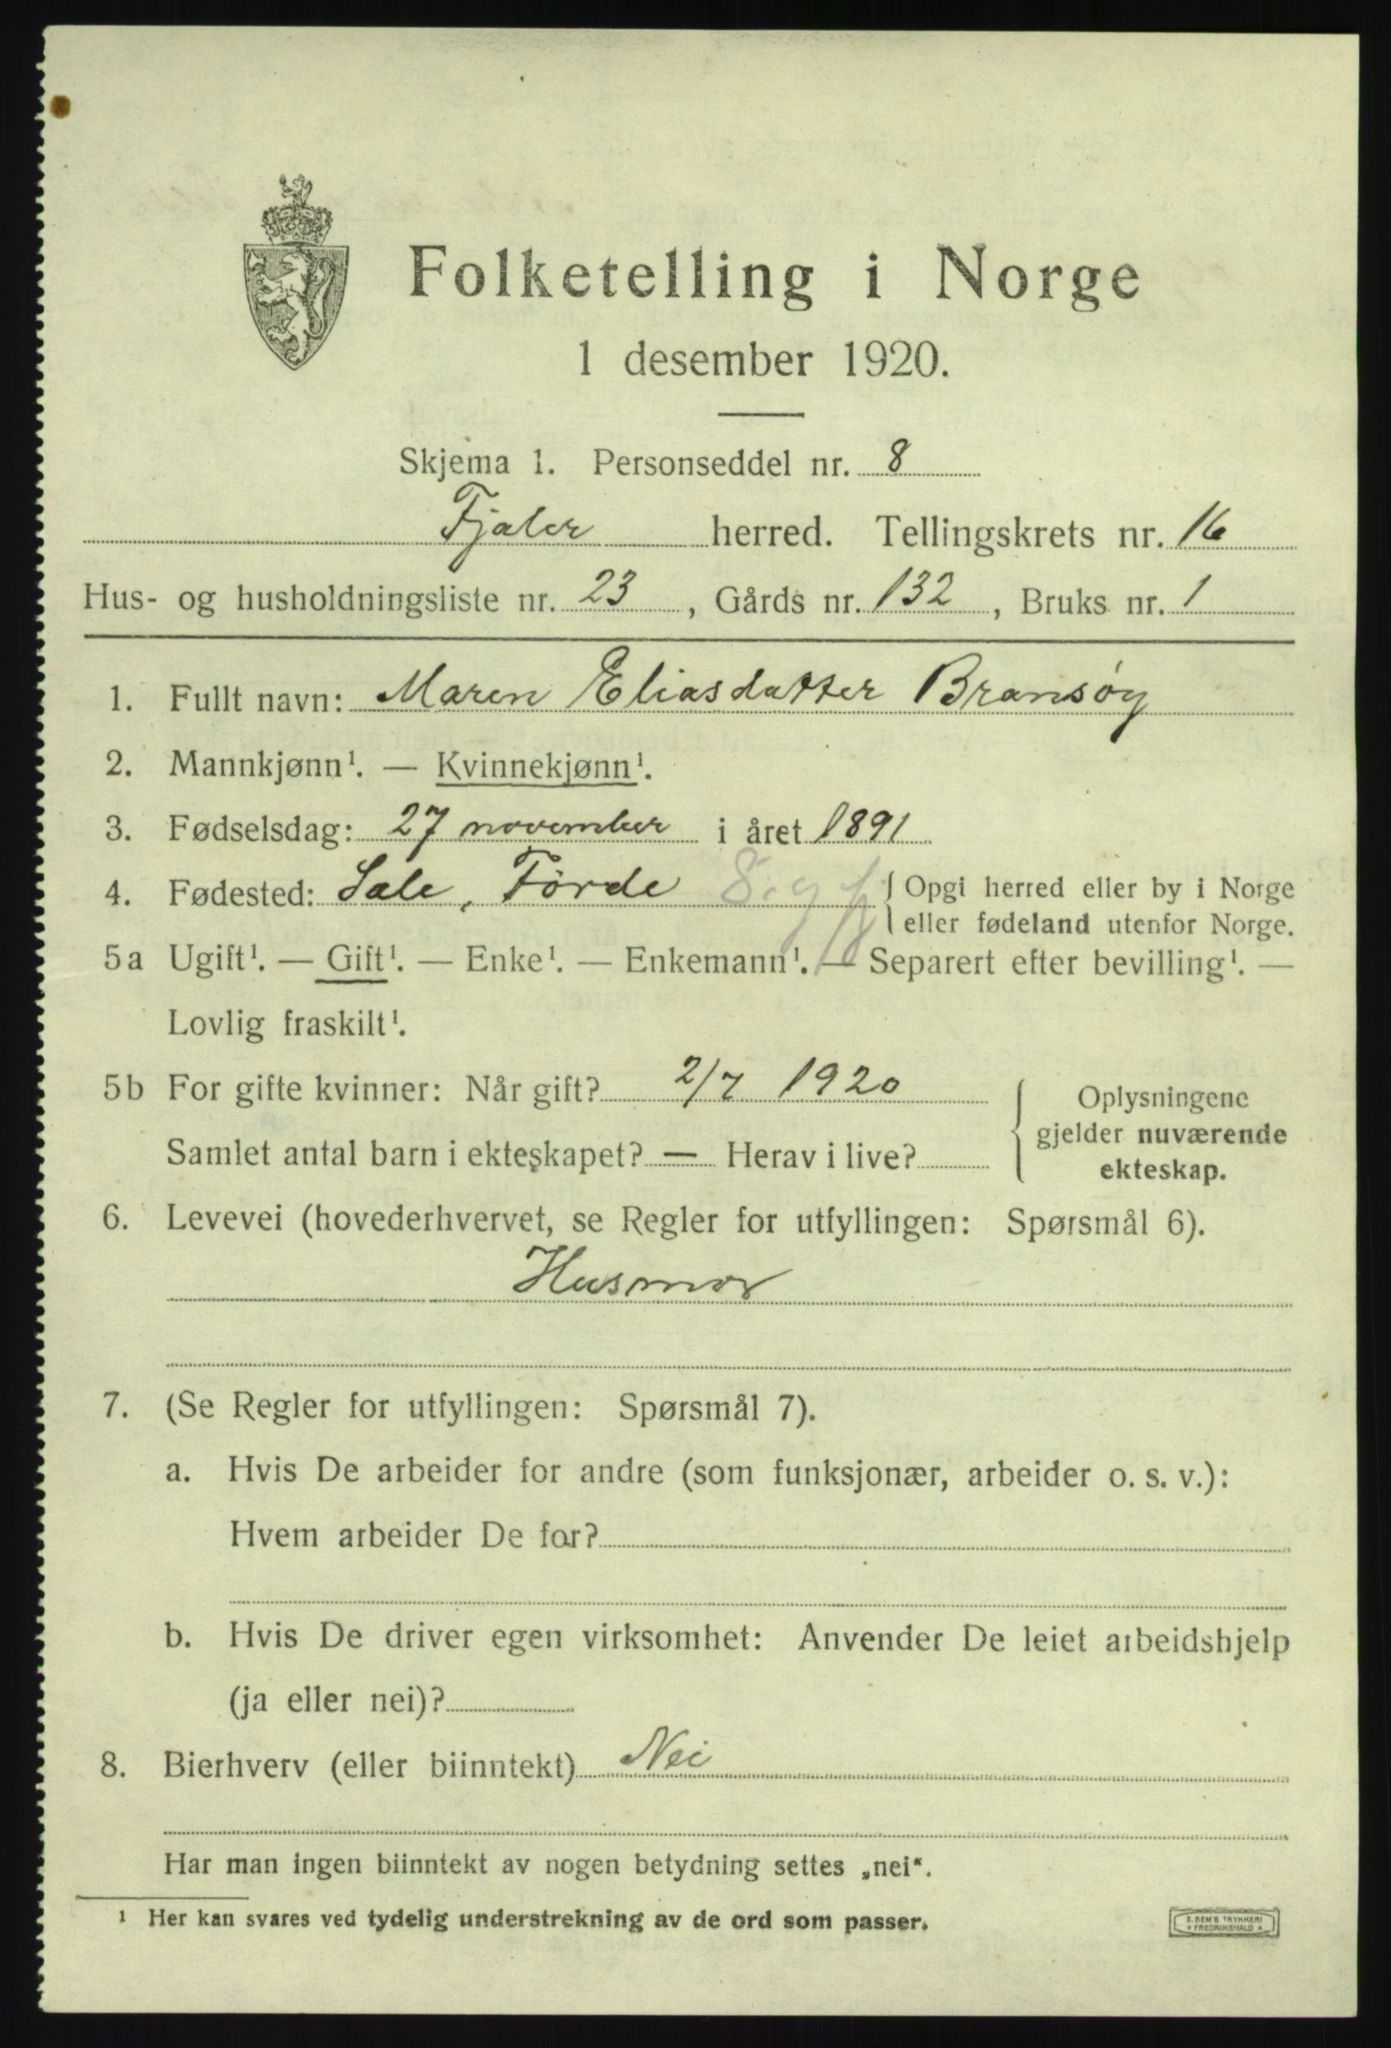 Folketelling i Norge
1 desember 1920.
Skjema 1. Personseddel nr. 8
Fjaler herred. Tellingskrets nr. 16
Hus- og husholdningsliste nr. 23, Gårds nr. 132, Bruks nr. 1
1. Fullt navn: Maren Eliasdatter Bransøy
2. Mannkjønn¹. — Kvinnekjønn¹.
3. Fødselsdag: 27 november i året 1891
4. Fødested: Sale, Førde { Opgi herred eller by i Norge
eller fødeland utenfor Norge.
5a Ugift¹. — Gift¹. — Enke¹. — Enkemann¹. — Separert efter bevilling¹. —
Lovlig fraskilt¹.
5b For gifte kvinner: Når gift? 2/7 1920
Samlet antal barn i ekteskapet? — Herav i live?
{ Oplysningene
gjelder nuværende
ekteskap.
6. Levevei (hovederhvervet, se Regler for utfyllingen: Spørsmål 6).
Husmor
7. (Se Regler for utfyllingen: Spørsmål 7).
a. Hvis De arbeider for andre (som funksjonær, arbeider o. s. v.):
Hvem arbeider De for?
b. Hvis De driver egen virksomhet: Anvender De leiet arbeidshjelp
(ja eller nei)?
8. Bierhverv (eller biinntekt) Nei
Har man ingen biinntekt av nogen betydning settes „nei“.
¹ Her kan svares ved tydelig understrekning av de ord som passer.
E. SEM'S TRYKKERI
FREDRIKSHALD